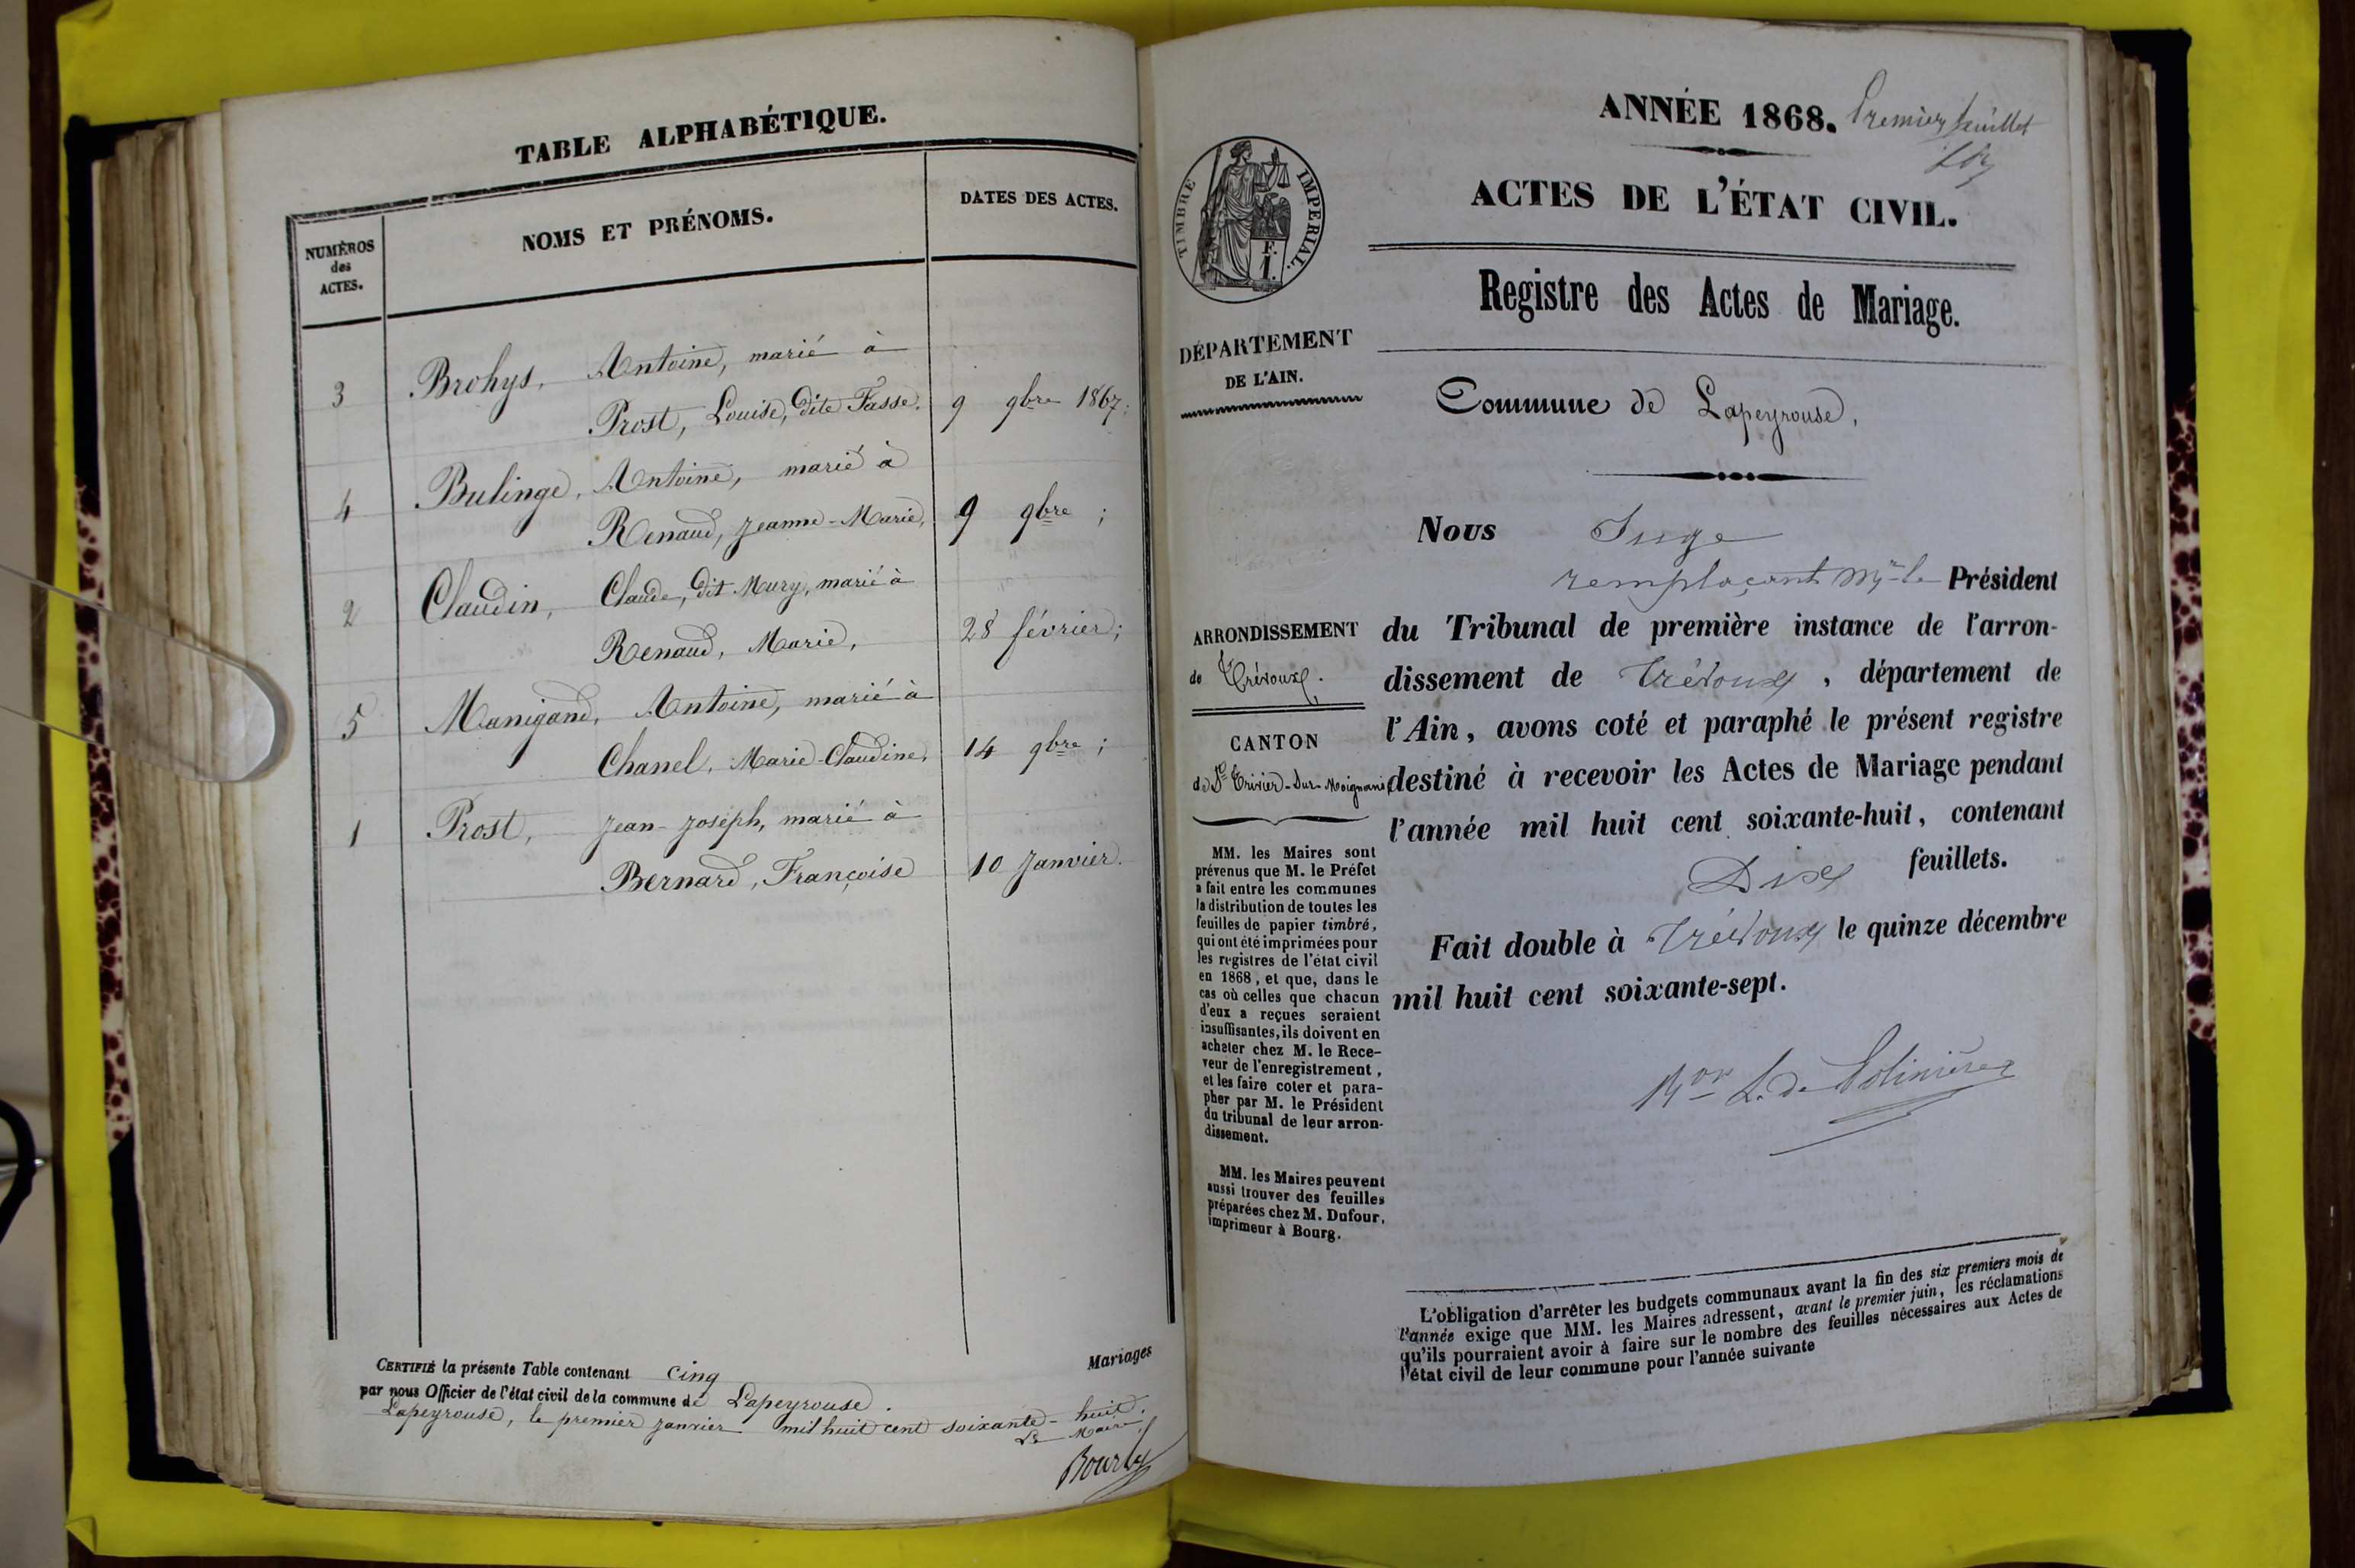 TABLE ALPHABÉTIQUE.
NUMÉROS
des
ACTES.
NOMS ET PRÉNOMS.
DATES DES ACTES.
3 Brohys, Antoine, marié à
Prost, Louise, dite Fasse. 9 9bre 1867;
4 Bulinge, Antoine, marié à
Renaud, Jeanne-Marie, 9 9bre ;
2 Claudin, Claude, dit Mury, marié à
Renaud, Marie, 28 février;
5 Manigand, Antoine, marié à
Chanel, Marie-Claudine, 14 9bre ;
1 Prost, Jean-Joseph, marié à
Bernard, Françoise 10 Janvier.
CERTIFIÉ la présente Table contenant cinq Mariages
par nous Officier de l'état civil de la commune de Lapeyrouse.
Lapeyrouse, le premier janvier mil huit cent soixante-huit.
Le Maire,
ANNÉE 1868. Premier feuillet
ACTES DE L'ÉTAT CIVIL.
TIMBRE IMPERIAL.
F.
1.
Registre des Actes de Mariage.
DÉPARTEMENT
DE L'AIN.
Commune de Lapeyrouse,
Nous Juge
remplaçant Mr le Président
du Tribunal de première instance de l'arron-
dissement de Trévoux, département de
l'Ain, avons coté et paraphé le présent registre
destiné à recevoir les Actes de Mariage pendant
l'année mil huit cent soixante-huit, contenant
Dix feuillets.
Fait double à Trévoux le quinze décembre
mil huit cent soixante-sept.
ARRONDISSEMENT
de Trévoux.
CANTON
de St Trivier-sur-Moignans
MM. les Maires sont
prévenus que M. le Préfet
a fait entre les communes
la distribution de toutes les
feuilles de papier timbré,
qui ont été imprimées pour
les registres de l'état civil
en 1868, et que, dans le
cas où celles que chacun
d'eux a reçues seraient
insuffisantes, ils doivent en
acheter chez M. le Rece-
veur de l'enregistrement,
et les faire coter et para-
pher par M. le Président
du tribunal de leur arron-
dissement.
MM. les Maires peuvent
aussi trouver des feuilles
préparées chez M. Dufour,
imprimeur à Bourg.
L'obligation d'arrêter les budgets communaux avant la fin des six premiers mois de
l'année exige que MM. les Maires adressent, avant le premier juin, les réclamations
qu'ils pourraient avoir à faire sur le nombre des feuilles nécessaires aux Actes de
l'état civil de leur commune pour l'année suivante